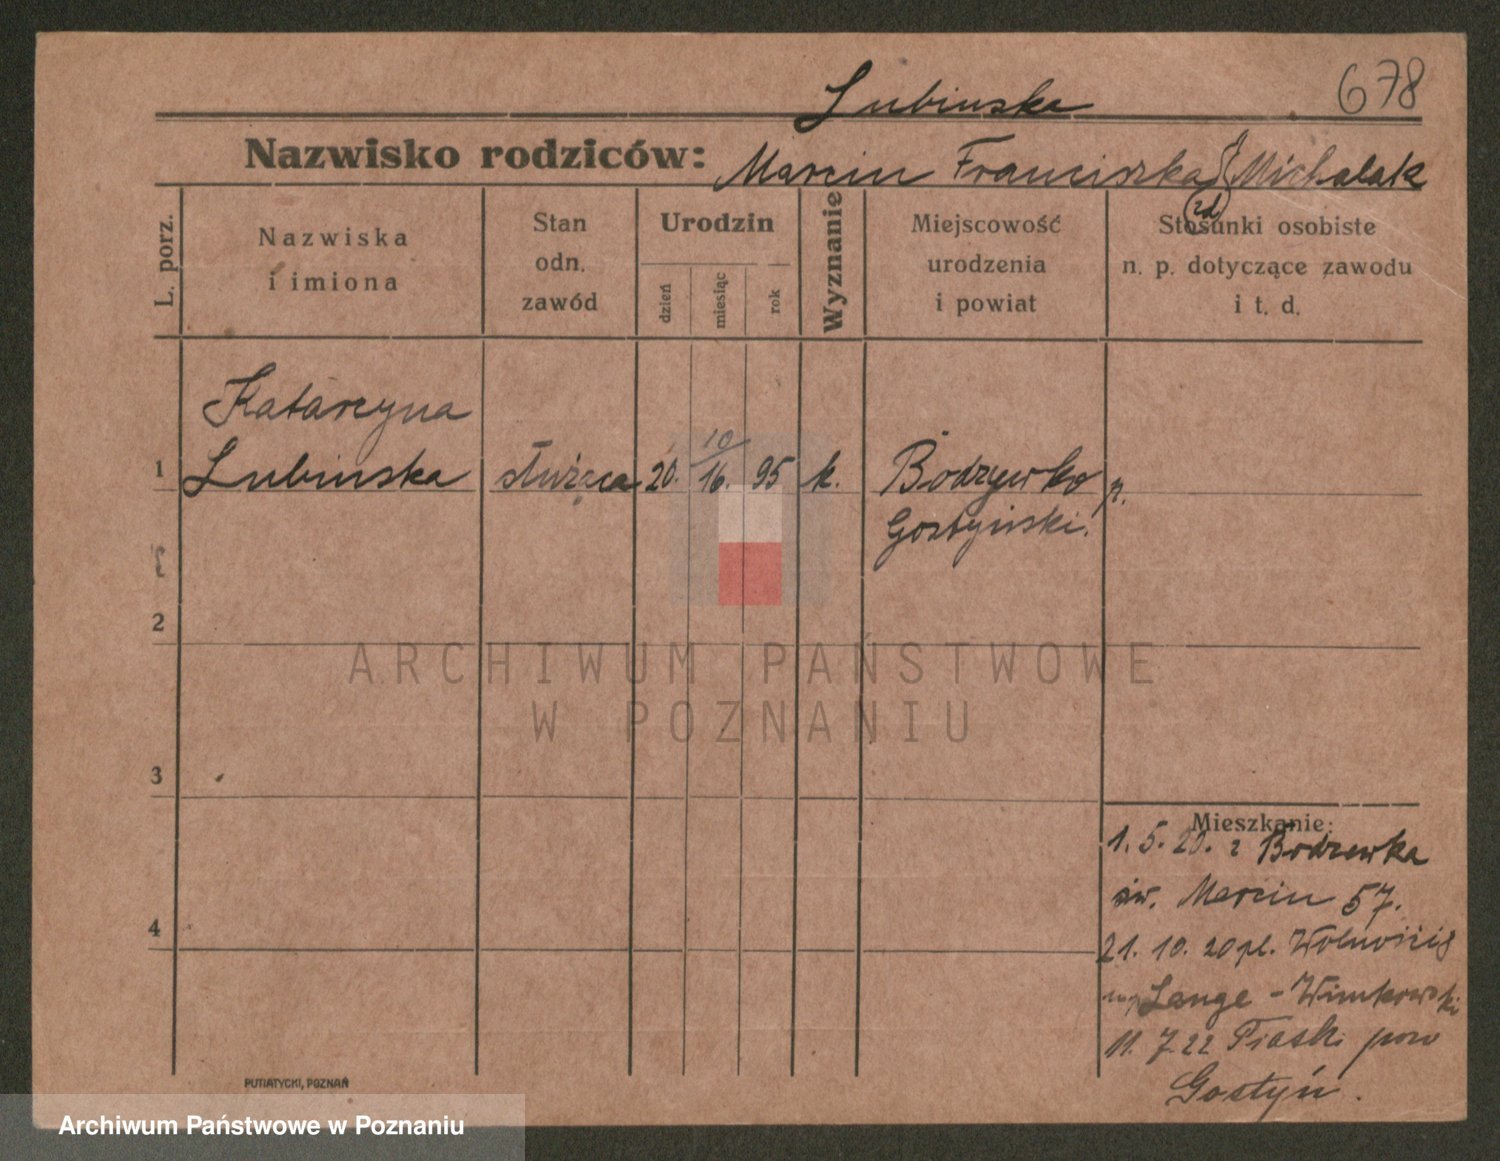 678
Lubinska
Nazwisko rodziców: Marcin Franciszka zd Michalak
L. porz.
Nazwiska
i imiona
Stan
odn.
zawód
Urodzin
dzień
miesiąc
rok
Wyznanie
Miejscowość
urodzenia
i powiat
Stosunki osobiste
n. p. dotyczące zawodu
i t. d.
Katarzyna
10
1 Lubinska służąca 20. 16. 95 k. Bodzewko p.
Gostyński.
2
3
4
Mieszkanie:
1. 5. 20. z Bodzewka
św. Marcin 57.
21. 10. 20 pl. Wolności 8
Lange - Winkowski
11. 7. 22 Piaski pow
Gostyń.
PUTIATYCKI, POZNAŃ
ARCHIWUM PAŃSTWOWE
W POZNANIU
Archiwum Państwowe w Poznaniu